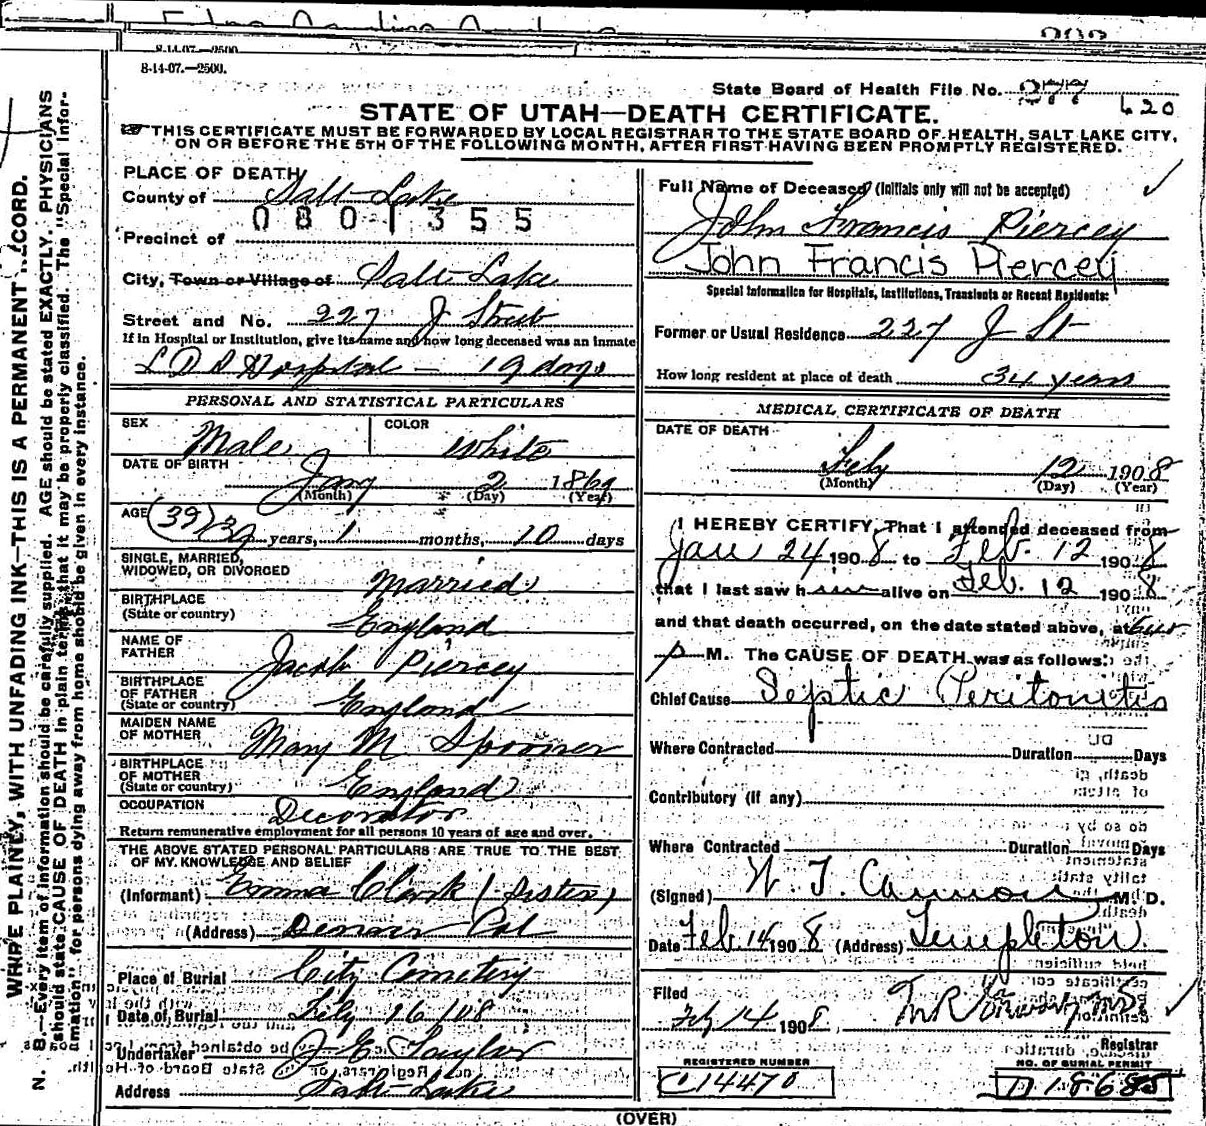 8-14-07.—2500.
State Board of Health File No. 377
620
STATE OF UTAH—DEATH CERTIFICATE.
THIS CERTIFICATE MUST BE FORWARDED BY LOCAL REGISTRAR TO THE STATE BOARD OF HEALTH, SALT LAKE CITY,
ON OR BEFORE THE 5TH OF THE FOLLOWING MONTH, AFTER FIRST HAVING BEEN PROMPTLY REGISTERED.
WRITE PLAINLY, WITH UNFADING INK—THIS IS A PERMANENT RECORD.
N. B.—Every item of information should be carefully supplied. AGE should be stated EXACTLY. PHYSICIANS
should state CAUSE OF DEATH in plain terms that it may be properly classified. The "Special Infor-
mation" for persons dying away from home should be given in every instance.
PLACE OF DEATH
County of Salt Lake
0801355
Precinct of
City, Town or Village of Salt Lake
Street and No. 227 J Street
If in Hospital or Institution, give its name and how long deceased was an inmate
L D S Hospital — 19 days
PERSONAL AND STATISTICAL PARTICULARS
SEX Male COLOR White
DATE OF BIRTH Jany 2 1869
(Month) (Day) (Year)
AGE (39) 39 years, 1 months, 10 days
SINGLE, MARRIED,
WIDOWED, OR DIVORCED Married
BIRTHPLACE
(State or country) England
NAME OF
FATHER Jacob Piercey
BIRTHPLACE
OF FATHER
(State or country) England
MAIDEN NAME
OF MOTHER Mary M Spooner
BIRTHPLACE
OF MOTHER
(State or country) England
OCCUPATION Decorator
Return remunerative employment for all persons 10 years of age and over.
THE ABOVE STATED PERSONAL PARTICULARS ARE TRUE TO THE BEST
OF MY KNOWLEDGE AND BELIEF
(Informant) Emma Clark (Sister)
(Address) Denver Col
Place of Burial City Cemetery
Date of Burial Feby 16 1908
Undertaker J E Taylor
Address Salt Lake
Full Name of Deceased (Initials only will not be accepted)
John Francis Piercey
John Francis Piercey
Special Information for Hospitals, Institutions, Transients or Recent Residents:
Former or Usual Residence 227 J St
How long resident at place of death 34 years
MEDICAL CERTIFICATE OF DEATH
DATE OF DEATH
Feby 12 1908
(Month) (Day) (Year)
I HEREBY CERTIFY, That I attended deceased from
Jan 24 1908 to Feb. 12 1908
that I last saw him alive on Feb. 12 1908
and that death occurred, on the date stated above, at 645
p M. The CAUSE OF DEATH was as follows:
Chief Cause Septic Peritonitis
Where Contracted Duration Days
Contributory (if any)
Where Contracted Duration Days
(Signed) W. T. Cannon M. D.
Date Feb. 14 1908 (Address) Templeton
Filed
Feb 14 1908
Registrar
REGISTERED NUMBER
C14470
NO. OF BURIAL PERMIT
D18685
(OVER)